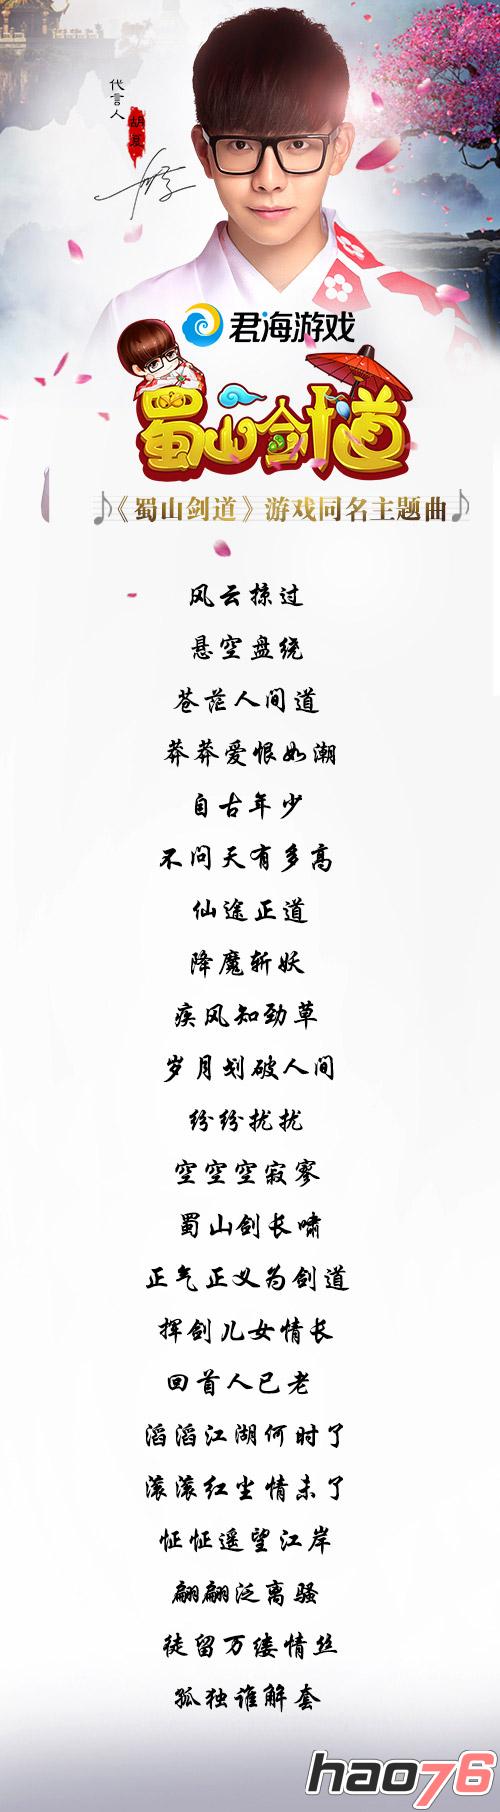 代言人
胡夏
君海游戏
蜀山剑道
《蜀山剑道》游戏同名主题曲
风云掠过
悬空盘绕
苍茫人间道
莽莽爱恨如潮
自古年少
不问天有多高
仙途正道
降魔斩妖
疾风知劲草
岁月划破人间
纷纷扰扰
空空空寂寥
蜀山剑长啸
正气正义为剑道
挥剑儿女情长
回首人已老
滔滔江湖何时了
滚滚红尘情未了
怔怔遥望江岸
翩翩泛离骚
徒留万缕情丝
孤独谁解套
hao76